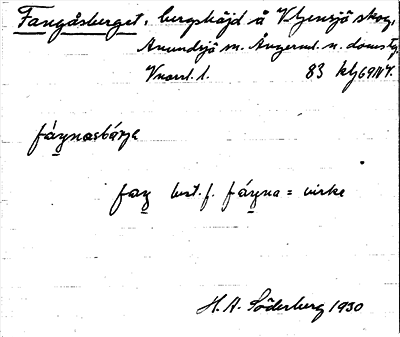 Fangåsberget, bergshöjd å Utjensjö skog,
Anundsjö sn. Ångerml. n. doms.
Vnorrl. l. 83
fáŋnasbárje
faŋ best. f. fáŋna = virke
H. A. Söderberg 1930